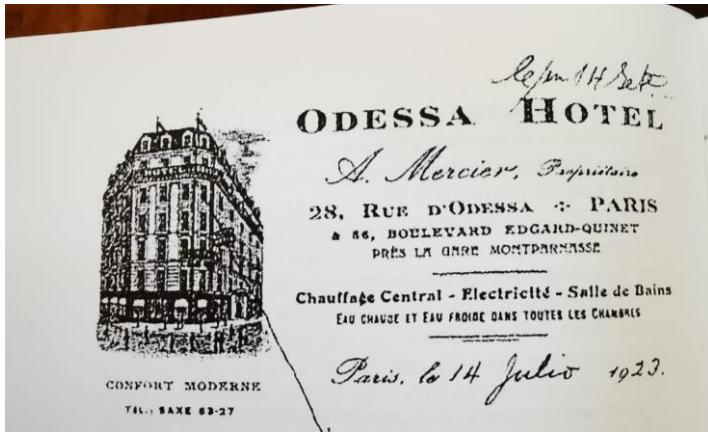 14 Set.
ODESSA HOTEL
A. Mercier, Propriétaire
28, RUE D'ODESSA PARIS
& 56, BOULEVARD EDGARD-QUINET
PRÈS LA GARE MONTPARNASSE
Chauffage Central - Electricité - Salle de Bains
EAU CHAUDE ET EAU FROIDE DANS TOUTES LES CHAMBRES
Paris, le 14 Julio 1923.
CONFORT MODERNE
TÉL.: SAXE 63-27